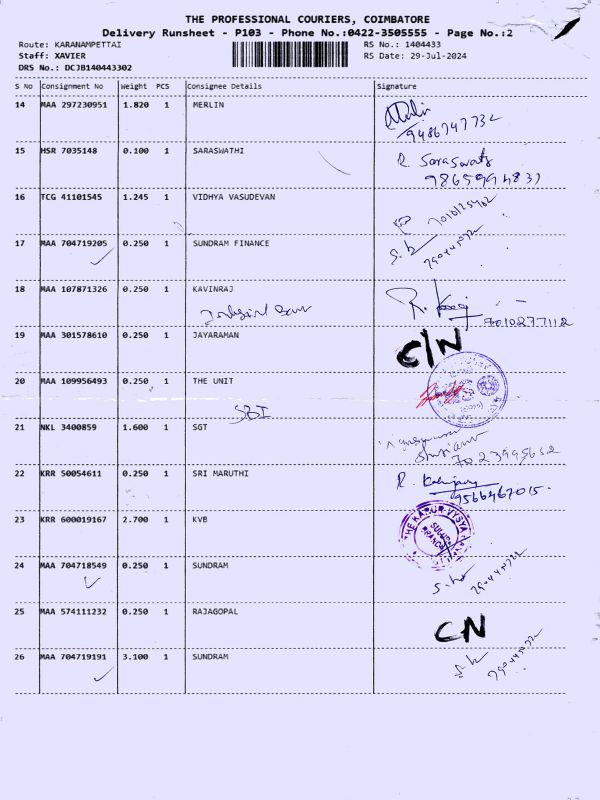 THE PROFESSIONAL COURIERS, COIMBATORE
Delivery Runsheet - P103 - Phone No.:0422-3505555 - Page No.:2
Route: KARANAMPETTAI RS No.: 1404433
Staff: XAVIER RS Date: 29-Jul-2024
DRS No.: DCJB140443302
S No Consignment No Weight PCS Consignee Details Signature
14 MAA 297230951 1.820 1 MERLIN
9486747732
15 HSR 7035148 0.100 1 SARASWATHI R. Saraswathi
16 TCG 41101545 1.245 1 VIDHYA VASUDEVAN
17 MAA 704719205 0.250 1 SUNDRAM FINANCE
18 MAA 107871326 0.250 1 KAVINRAJ
7010277112
19 MAA 301578610 0.250 1 JAYARAMAN C/N
20 MAA 109956493 0.250 1 THE UNIT
SBI
21 NKL 3400859 1.600 1 SGT
7023995652
22 KRR 50054611 0.250 1 SRI MARUTHI
9566467015
23 KRR 600019167 2.700 1 KVB THE KARUR VYSYA
24 MAA 704718549 0.250 1 SUNDRAM
25 MAA 574111232 0.250 1 RAJAGOPAL CN
26 MAA 704719191 3.100 1 SUNDRAM